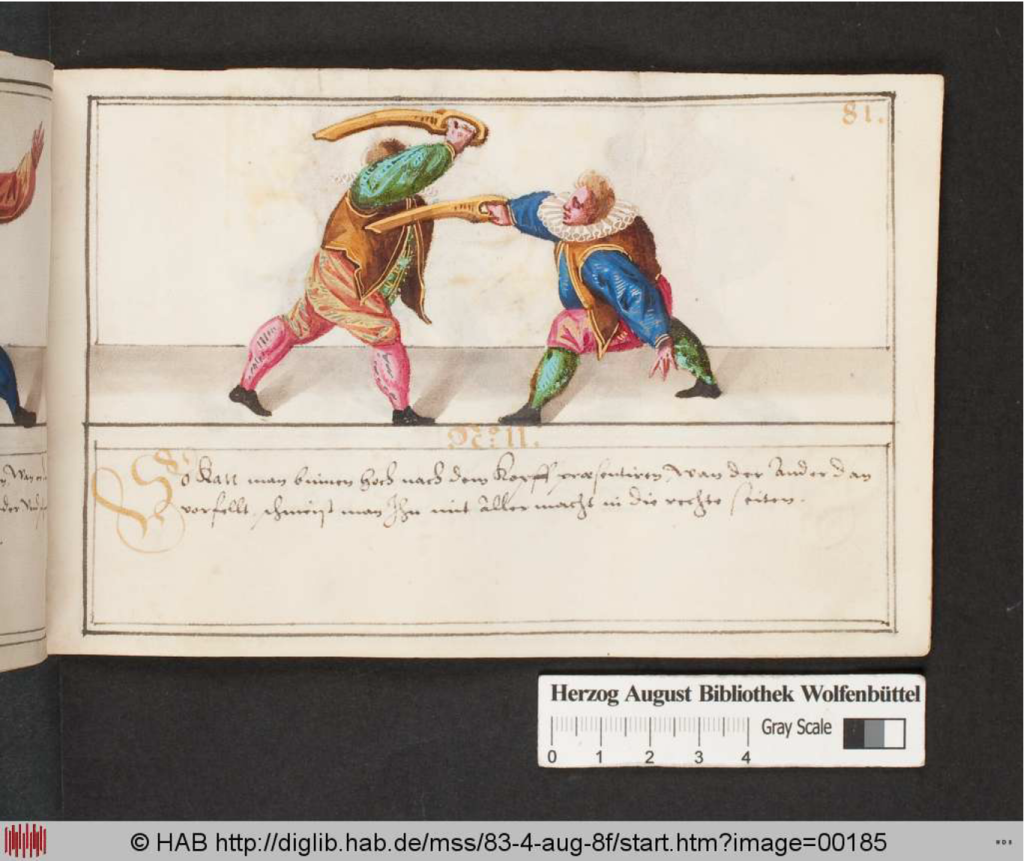 81.
No: 11.
So Kan man binnen hoch nach dem Kopff præsentiren, Wan der Ander dan
vorfellt, schmeist man Ihn mit Aller macht in die rechte seiten.
Herzog August Bibliothek Wolfenbüttel
Gray Scale
0 1 2 3 4
© HAB http://diglib.hab.de/mss/83-4-aug-8f/start.htm?image=00185